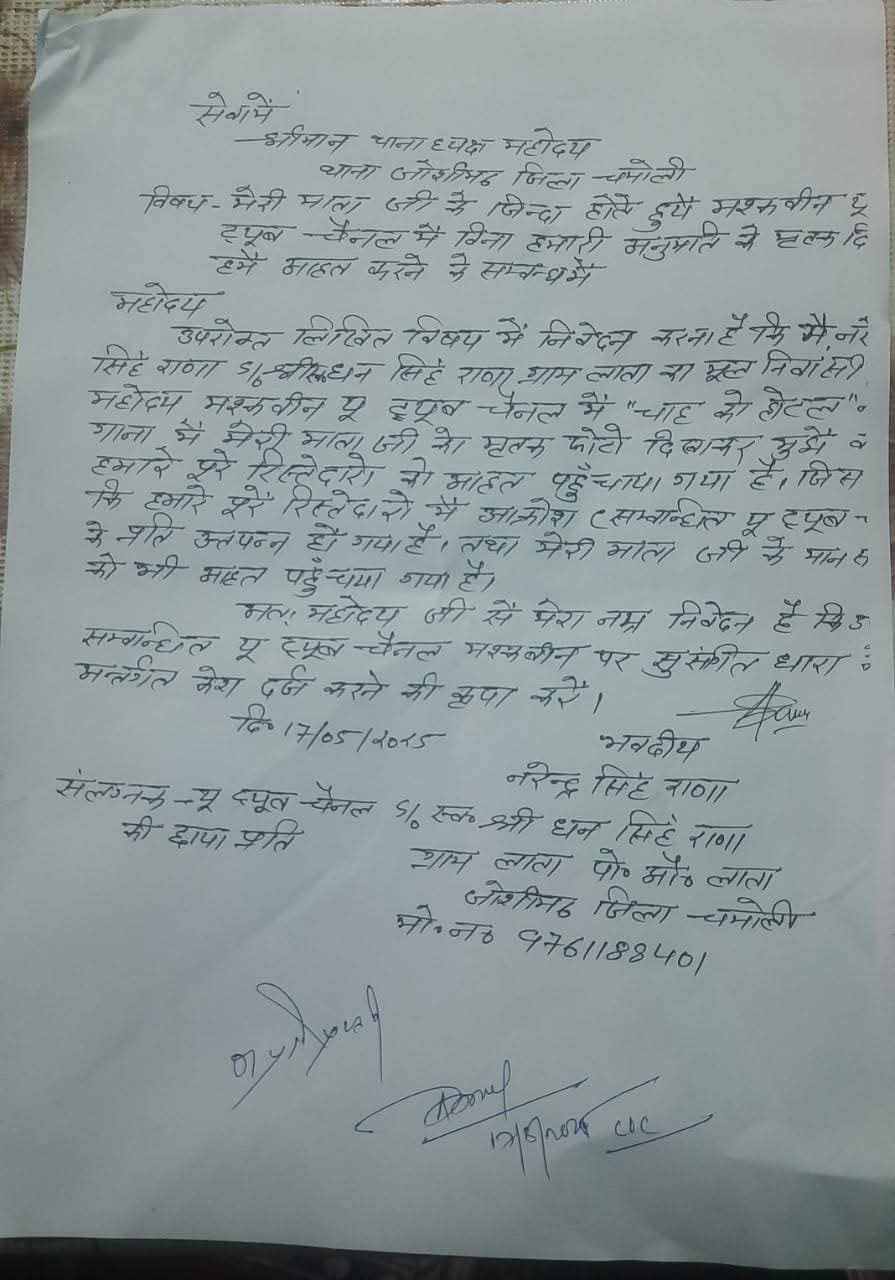 सेवामें
श्रीमान थानाध्यक्ष महोदय
थाना जोशीमठ जिला चमोली
विषय - मेरी माता जी के जिन्दा होते हुये मश्कबीन यू
ट्यूब चैनल मै विना हमारी अनुमति के मृतक दि
हमै आहत करने के सम्बन्धमै
महोदय
उपरोक्त लिखित विषय मै निवेदन करना है कि मै, नरे
सिंह राणा S/o श्री स्व धन सिंह राणा ग्राम लाता का मूल निवासी
महोदय मश्कबीन यू ट्यूब चैनल मै "चाह को होटल"
गाना मै मेरी माता जी का मृतक फोटो दिखाकर मुझै व
हमारे पूरे रिस्तेदारो को आहत पहुँचाया गया है। जिस
कि हमारे पूरे रिस्तेदारो मै आक्रोश (सम्बन्धित यू ट्यूब
के प्रति उत्तपन्न हो गया है। तथा मेरी माता जी के मान
को भी आहत पहुँचाया गया है।
अतः महोदय जी सै मेरा नम्र निवेदन है कि
सम्बन्धित यू ट्यूब चैनल मश्कबीन पर सुसंगत धारा
अन्तर्गत केश दर्ज करने की कृपा करें।
दि० 17/05/2025
भवदीय
नरेन्द्र सिंह राणा
संलग्नक - यू ट्यूब चैनल
की छाया प्रति
S/o स्व० श्री धन सिंह राणा
ग्राम लाता पो० ओ० लाता
जोशीमठ जिला चमोली
मो० न० 9761188401